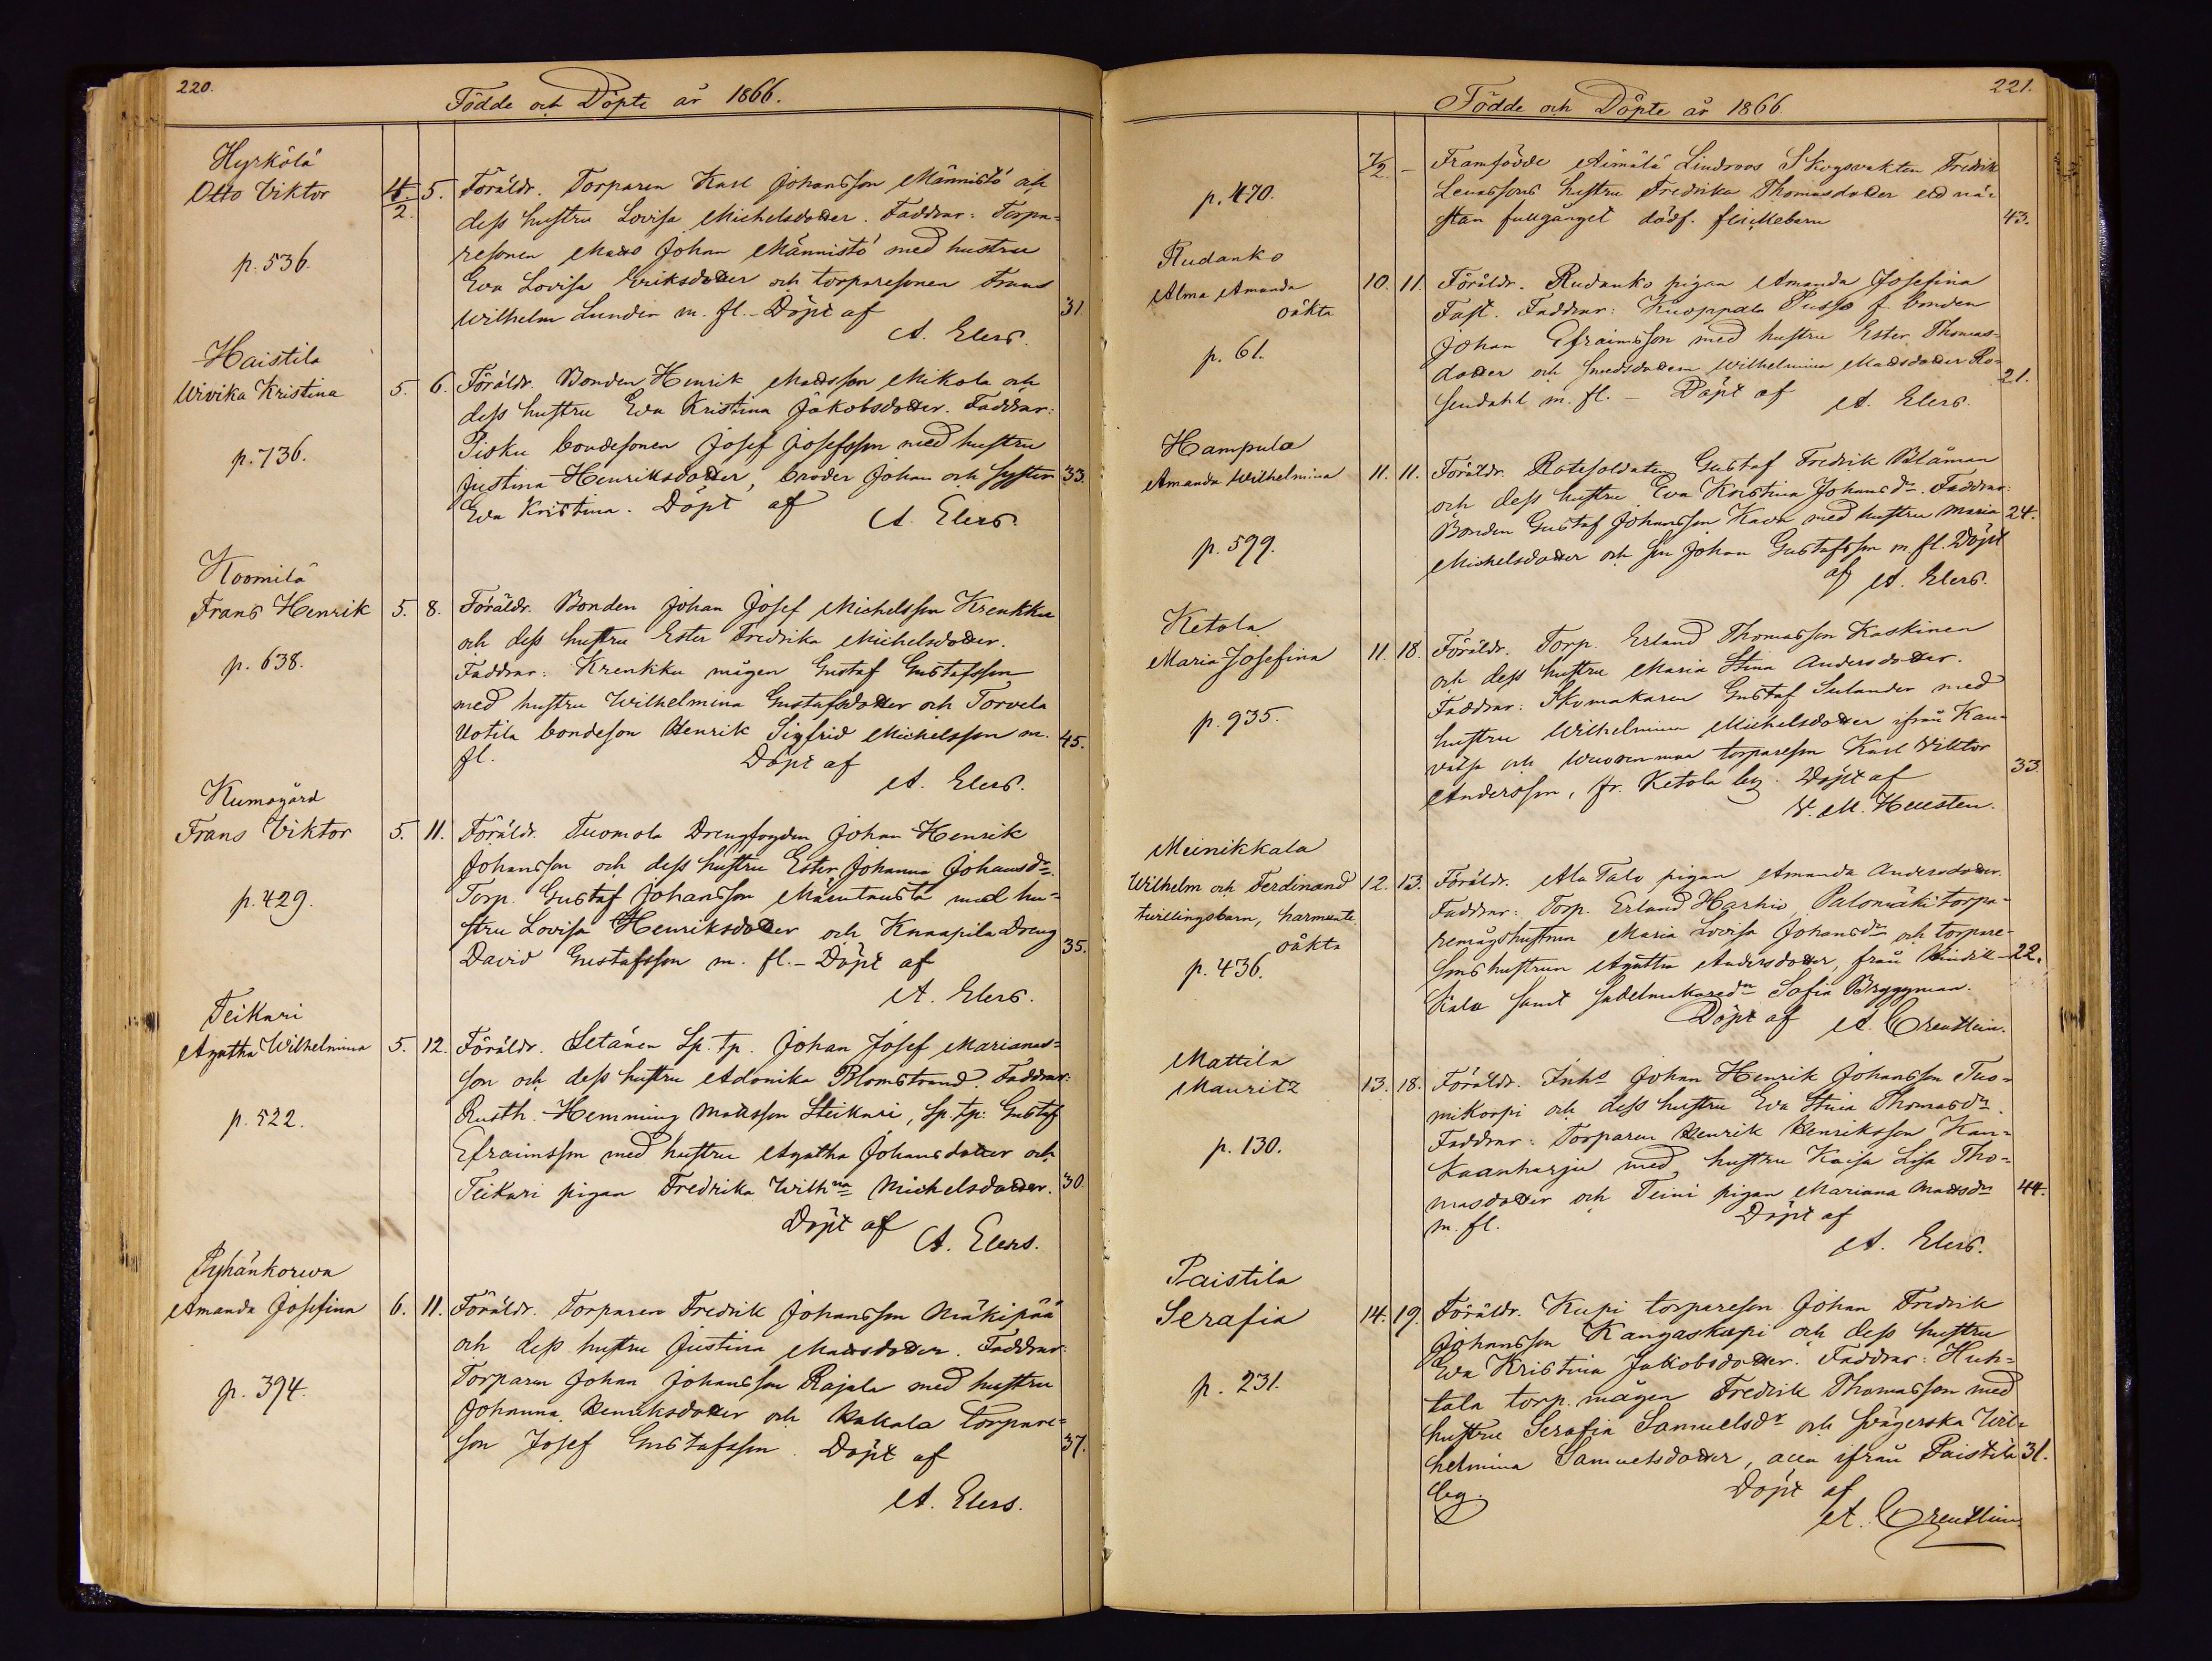 220.
Födde och Döpte år 1866.
Hyrkölä
Otto Viktor
p. 536.
4/2. 5. Föräldr. Torparen Karl Johansson Männistö och
dess hustru Lovisa Michelsdotter. Faddrar: Torpa-
resonen Matts Johan Männistö med hustru
Eva Lovisa Eriksdotter och torparesonen Frans
Wilhelm Lundén m. fl. - Döpt af 31.
A. Elers.
Haistila
Wivika Kristina
p. 736.
5. 6. Föräldr. Bonden Henrik Mattsson Mikola och
dess hustru Eva Kristina Jakobsdotter. Faddrar:
Pisku bondesonen Josef Josefsson med hustru
Justina Henriksdotter, broder Johan och syster 33.
Eva Kristina. Döpt af
A. Elers.
Koomilä
Frans Henrik
p. 638.
5. 8. Föräldr. Bonden Johan Josef Michelsson Krenkku
och dess hustru Ester Fredrika Michelsdotter.
Faddrar: Krenkku mågen Gustaf Gustafsson
med hustru Wilhelmina Gustafsdotter och Torvela
Uotila bondeson Henrik Sigfrid Michelsson m. 45.
fl. Döpt af
A. Elers.
Kumogård
Frans Viktor
p. 429.
5. 11. Föräldr. Tuomola Drengfogden Johan Henrik
Johansson och dess hustru Ester Johanna Johansdr.
Torp. Gustaf Johansson Mäentausta med hu-
stru Lovisa Henriksdotter och Knaapila Dreng
David Gustafsson m. fl. - Döpt af 35.
A. Elers.
Teikari
Agatha Wilhelmina
p. 522.
5. 12. Föräldr. Setänen Sp. tp. Johan Josef Marianas-
son och dess hustru Adonika Blomstrand. Faddrar:
Rusth. Hemming Matsson Steikari, Sp. tp. Gustaf
Efraimsson med hustru Agatha Johansdotter och
Teikari pigan Fredrika Wilhna Michelsdotter. 30.
Döpt af A. Elers.
Pyhänkorwa
Amanda Josefina
p. 394.
6. 11. Föräldr. Torparen Fredrik Johansson Mäkipää
och dess hustru Justina Mattsdotter. Faddrar:
Torparen Johan Johansson Rajala med hustru
Johanna Henriksdotter och Kukola torpare-
son Josef Gustafsson. Döpt af 37.
A. Elers.
221.
Födde och Döpte år 1866.
p. 470.
7/2. - Framfödde Äimälä Lindroos Skogsvakten Fredrik
Hustru Fredrika Thomasdotter ett nä-
stan fullgånget dödf. flickebarn 43.
Rudanko
Alma Amanda
oäkta
p. 61.
10. 11. Föräldr. Rudanko pigan Amanda Josefina
Fast. Faddrar: Knoppala Pusso f. bonden
Johan Efraimsson med hustru Ester Thomas-
dotter och Smedsdottern Wilhelmina Mattsdotter Ro-
sendahl m. fl. - Döpt af 21.
A. Elers.
Hampula
Amanda Wilhelmina
p. 599.
11. 11. Föräldr. Rotesoldaten Gustaf Fredrik Blåman
och dess hustru Eva Kristina Johansdr. Faddrar:
Bonden Gustaf Johansson Kava med hustru Maria 24.
Michelsdotter och son Johan Gustafsson m. fl. Döpt
af A. Elers.
Ketola
Maria Josefina
p. 935.
11. 18. Föräldr. Torp. Erland Thomasson Kaskinen
och dess hustru Maria Stina Andersdotter.
Faddrar: Skomakaren Gustaf Sulander med
hustru Wilhelmina Michelsdotter ifrån Kau-
vatsa och Wuorenmaa torpareson Karl Viktor
Andersson, fr. Ketola by. Döpt af 33.
V. M. Hellsten.
Meinikkala
Wilhelm och Ferdinand
tvillingsbarn, harmente
oäkta
p. 436.
12. 13. Föräldr. Ala Talo pigan Amanda Andersdotter.
Faddrar: Torp. Erland Harhio, Palomäki torpa-
remågshustrun Maria Lovisa Johansdr och torpare-
sonshustrun Agatha Andersdotter, från 22.
kala samt sadelmakaredr Sofia Bryggman.
Döpt af A. Orenttein.
Mattila
Mauritz
p. 130.
13. 18. Föräldr. Inhs Johan Henrik Johansson Tuo-
mikorpi och dess hustru Eva Stina Thomasdr.
Faddrar: Torparen Henrik Henriksson Kan-
kaanharju med hustru Kaisa Lisa Tho-
masdotter och Teini pigan Mariana Mattsdr 44.
m. fl. Döpt af
A. Elers.
Paistila
Serafia
p. 231.
14. 19. Föräldr. Kupi torpareson Johan Fredrik
Johansson Kangaskupi och dess hustru
Eva Kristina Jakobsdotter. Faddrar: Huh-
tala torp. mågen Fredrik Thomasson med
hustru Serafia Samuelsdr och svägerska Wil-
helmina Samuelsdotter, alla ifrån Paistila 31.
by. Döpt af
A. Orenttein.